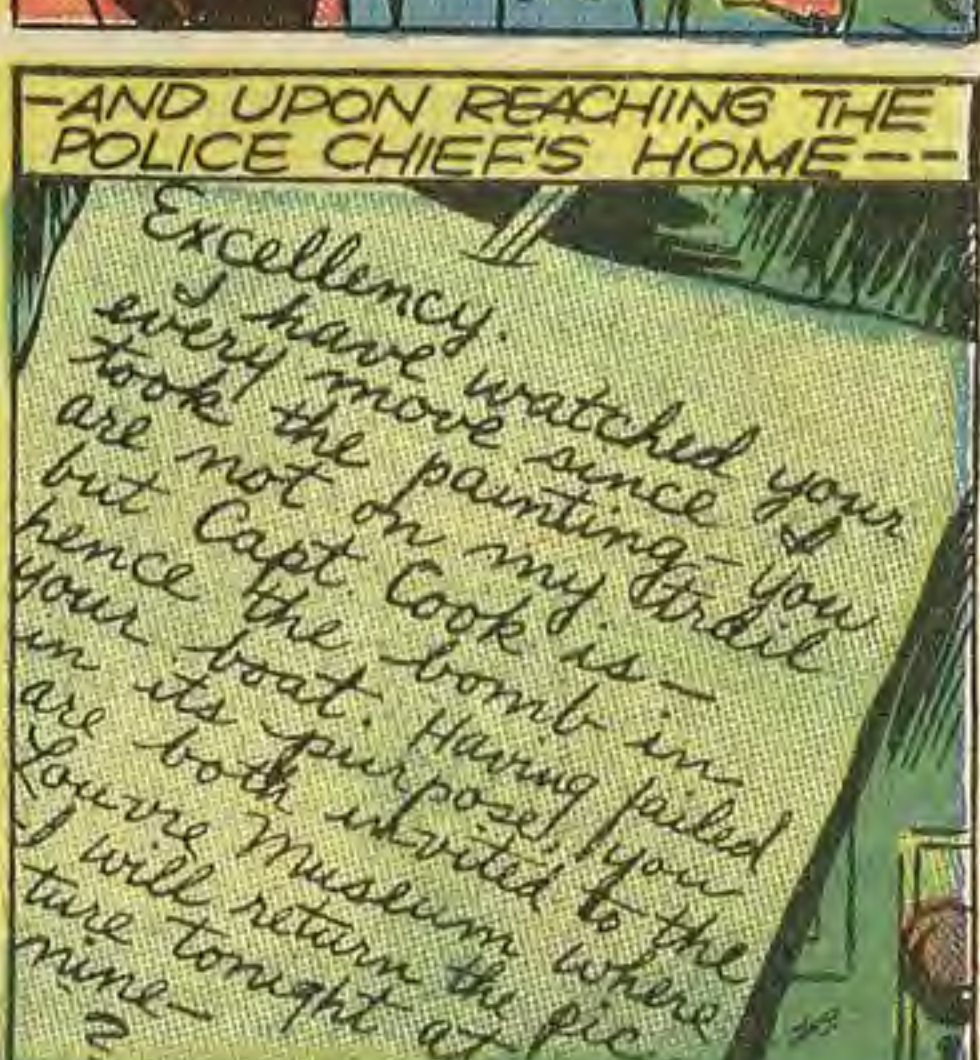 -AND UPON REACHING THE
POLICE CHIEF'S HOME--
Excellency.
I have watched your
every move since I
took the painting- you
are not on my trail
but Capt. Cook is-
hence the bomb in
your boat. Having failed
in its purpose, you
are both invited to the
Louvre Museum where
I will return the pic
ture tonight at
nine-
?